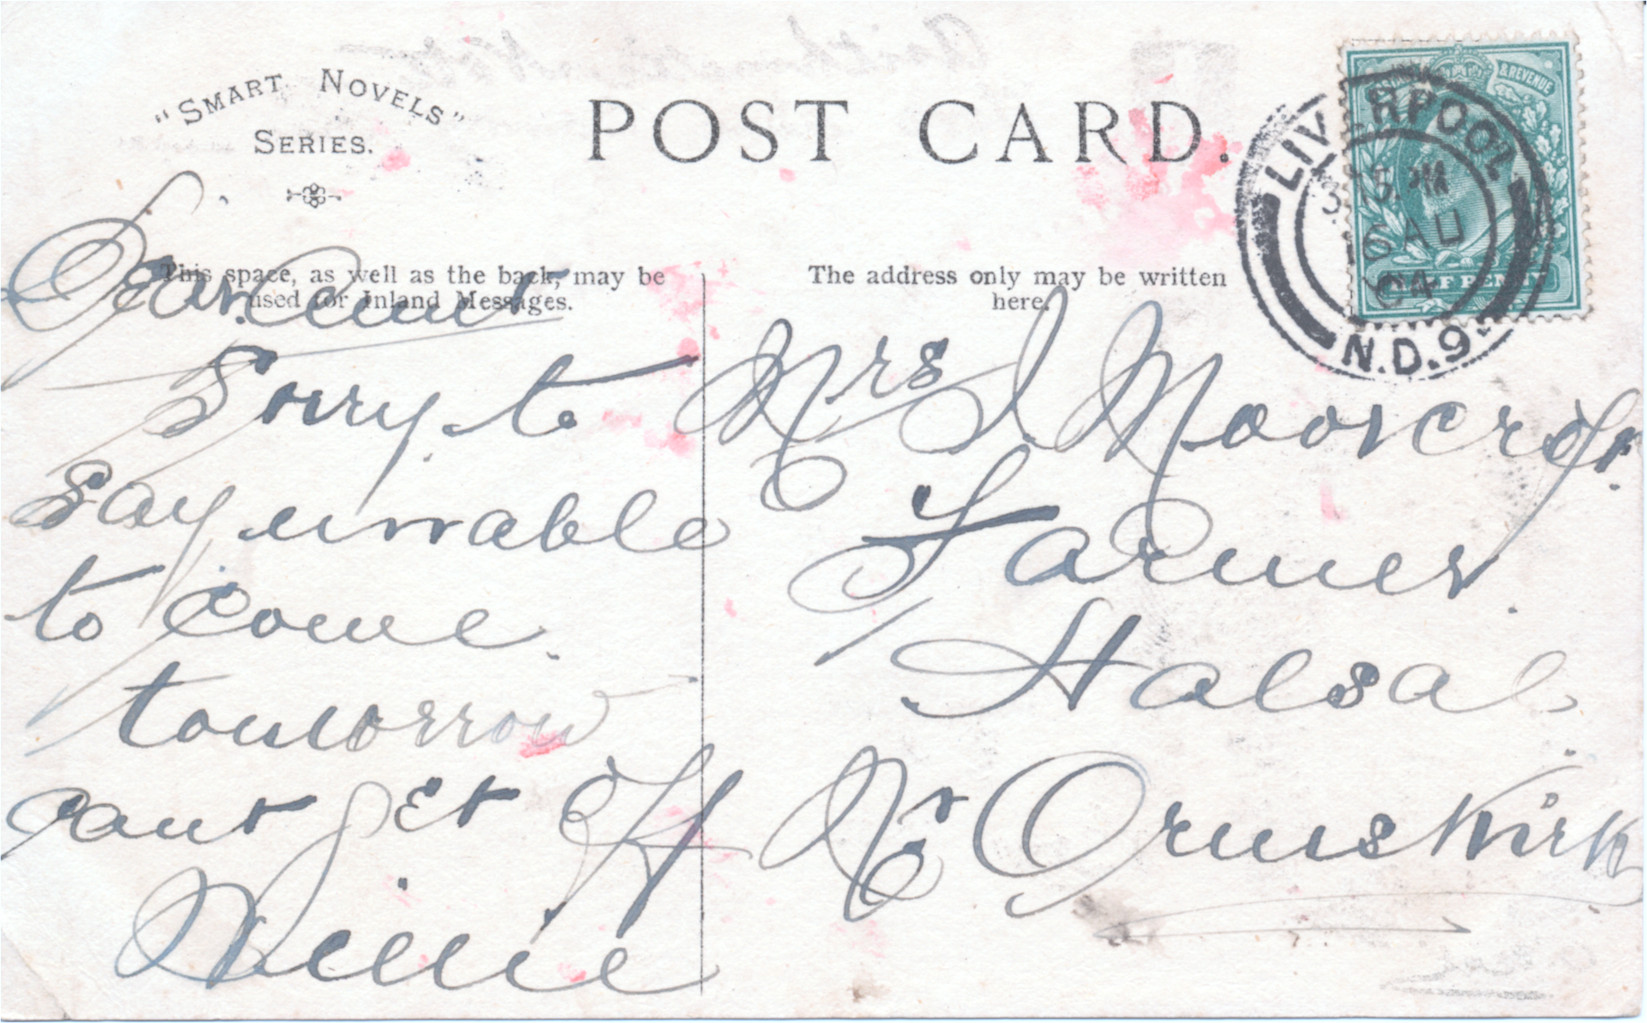 "SMART NOVELS"
SERIES.
POST CARD.
& REVENUE
LIVERPOOL
16 AU
04
HALF PENNY
N.D.9
This space, as well as the back, may be
used for Inland Messages.
The address only may be written
here.
Dear Aunt
Sorry to
say unable
to come
tomorrow
cant get off
Nellie
Mrs J Moorcroft
Farmer
Halsal
Nr Ormskirk